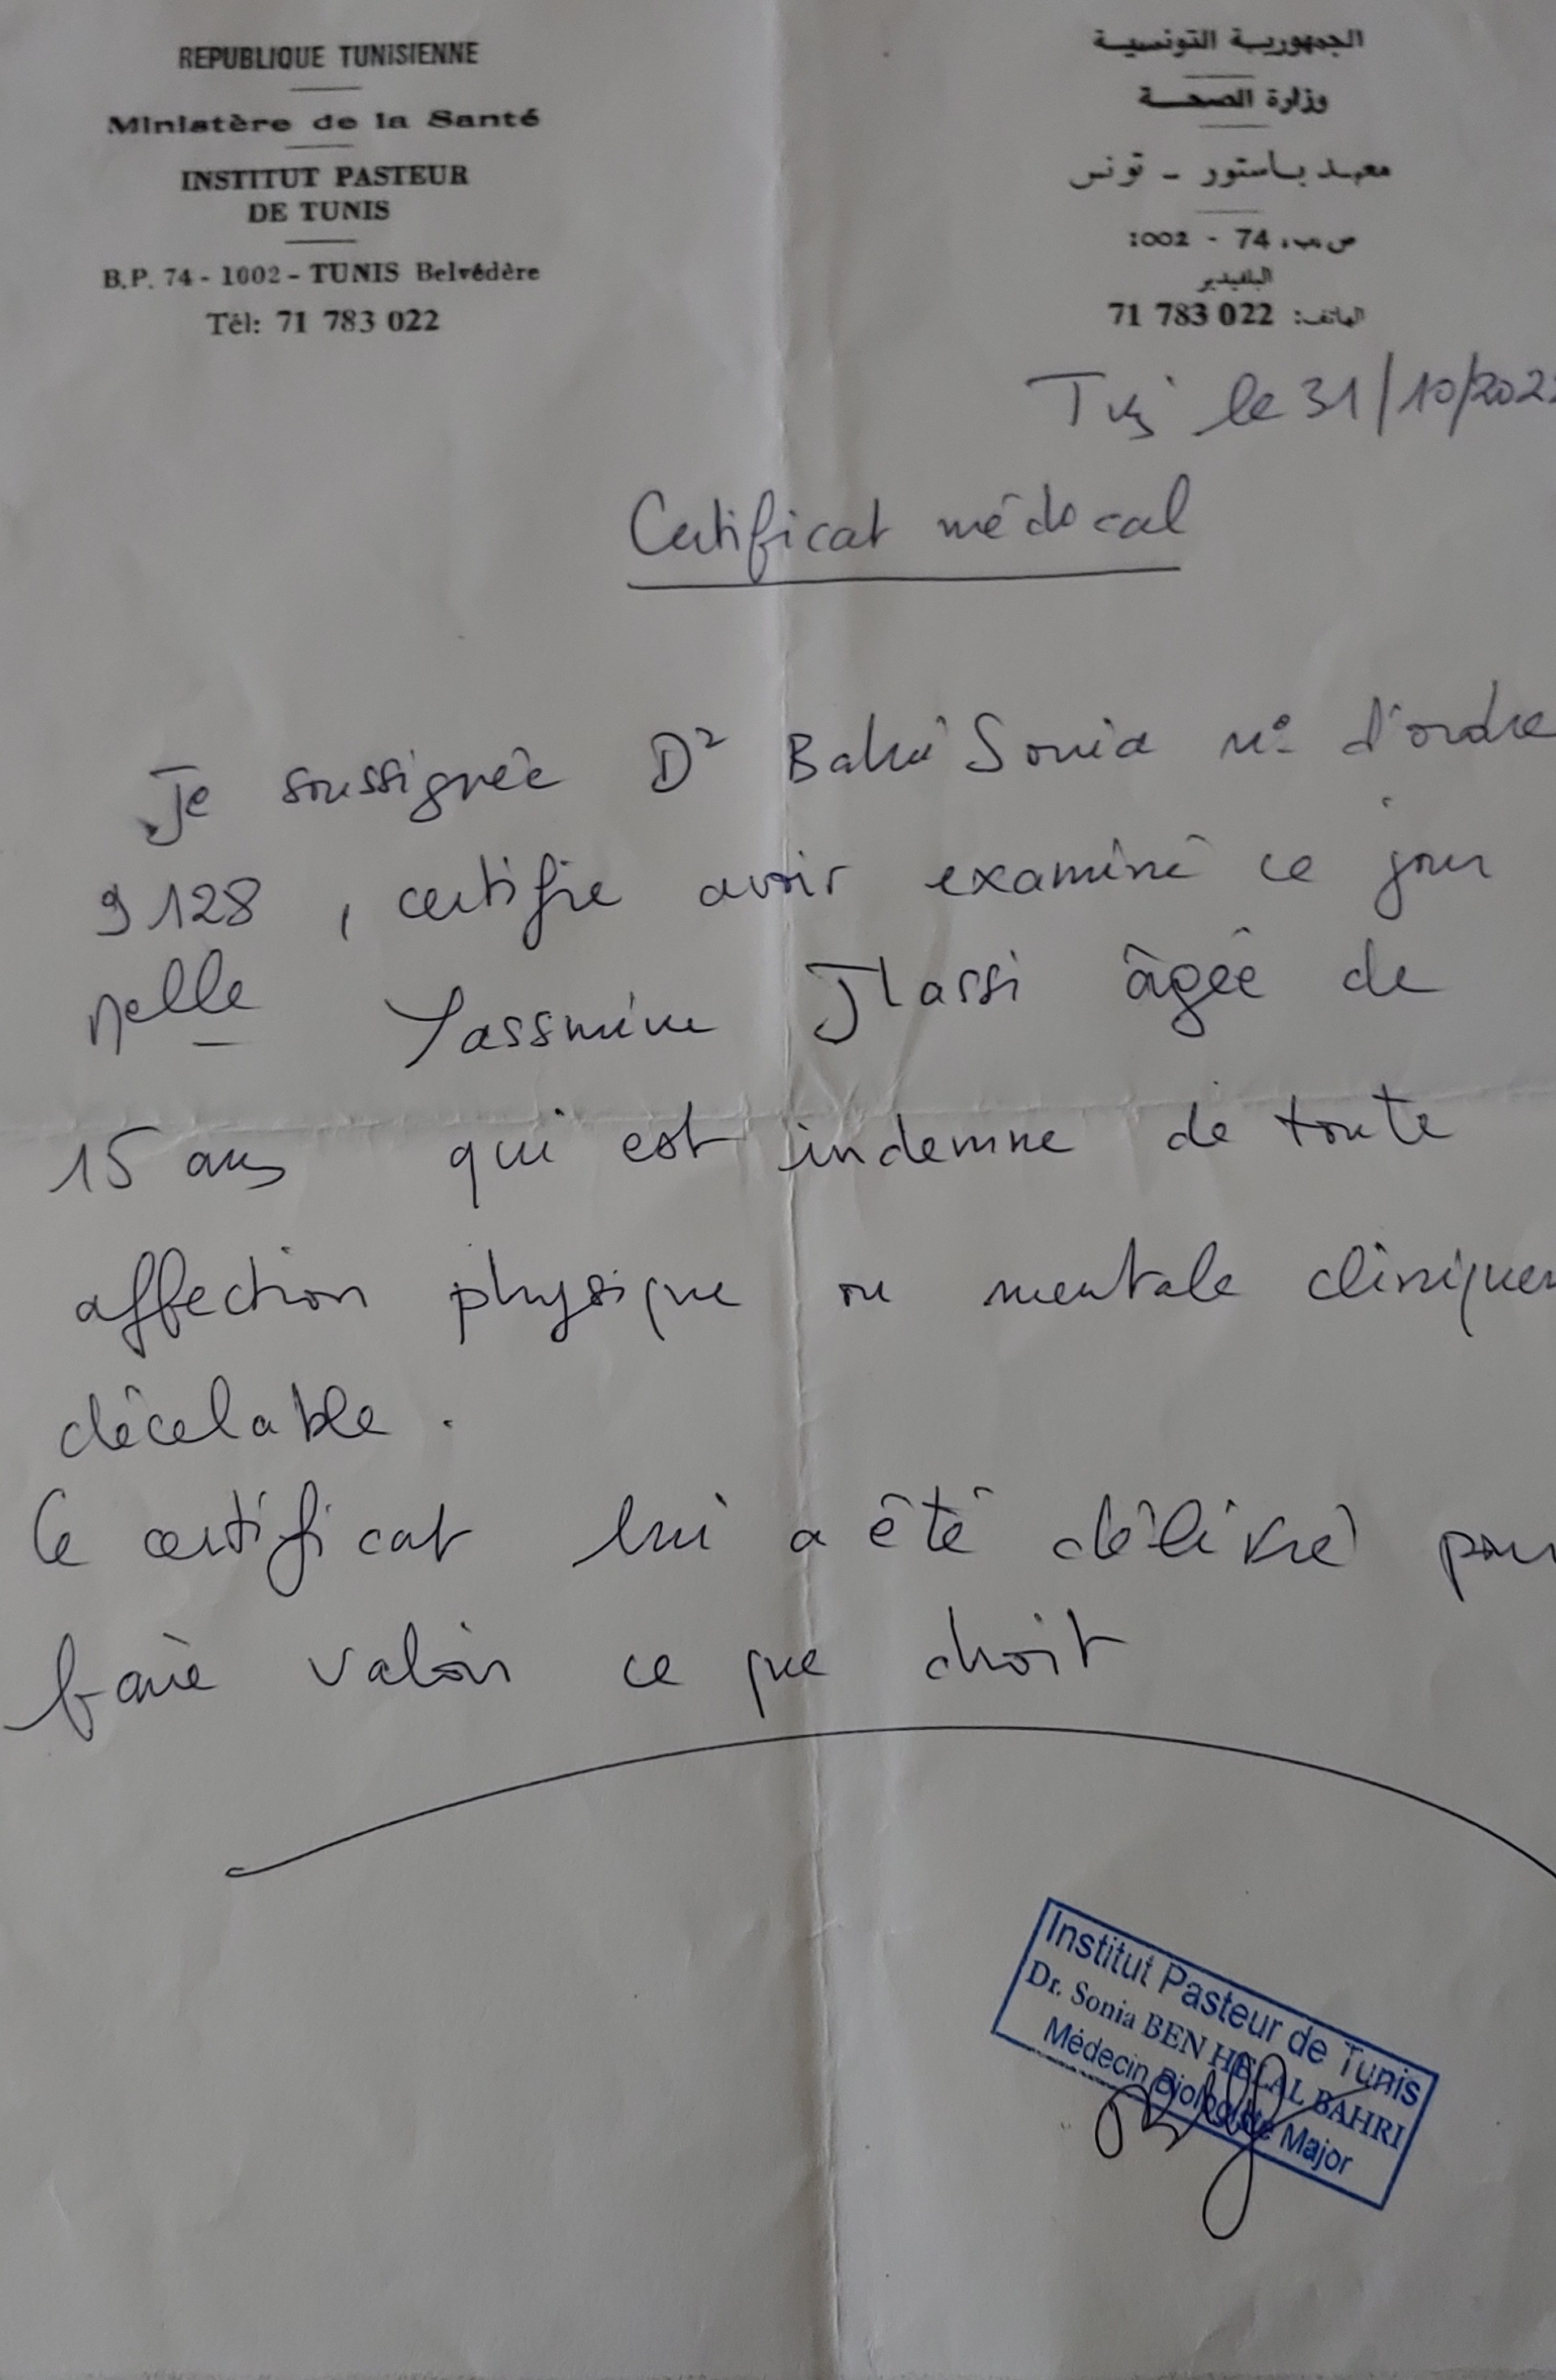 REPUBLIQUE TUNISIENNE
Ministère de la Santé
INSTITUT PASTEUR
DE TUNIS
B.P. 74 - 1002 - TUNIS Belvédère
Tél: 71 783 022
الجمهورية التونسية
وزارة الصحة
معهد باستور - تونس
ص.ب. 74 - 1002
البلفيدير
الهاتف: 71 783 022
le 31/10/202
Certificat médical
Je soussignée Dr Bahri Sonia n° d'ordre
9128, certifie avoir examiné ce jour
Melle Yassmine Jlassi âgée de
15 ans qui est indemne de toute
affection physique ou mentale clinique
décelable.
Ce certificat lui a été délivré pour
faire valoir ce que droit
Institut Pasteur de Tunis
Dr. Sonia BEN HELAL BAHRI
Médecin Biologiste Major